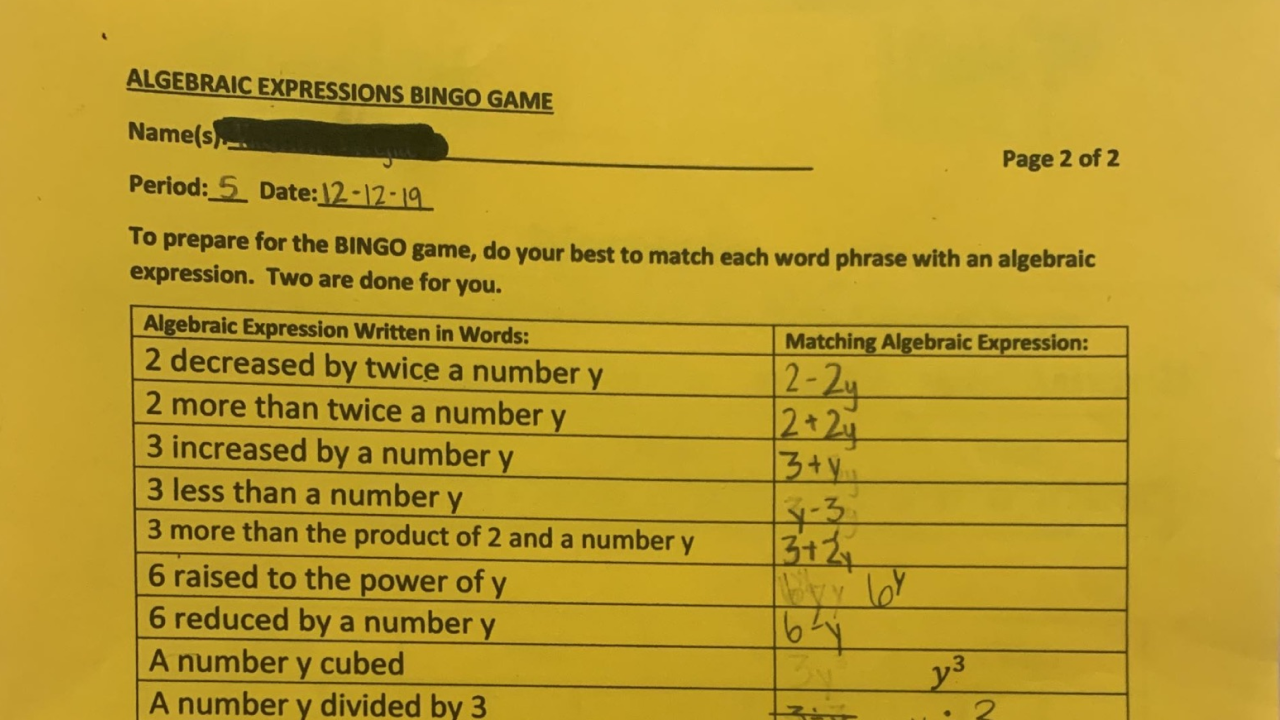 ALGEBRAIC EXPRESSIONS BINGO GAME
Name(s):
Page 2 of 2
Period: 5 Date: 12-12-19
To prepare for the BINGO game, do your best to match each word phrase with an algebraic
expression. Two are done for you.
Algebraic Expression Written in Words: Matching Algebraic Expression:
2 decreased by twice a number y 2-2y
2 more than twice a number y 2+2y
3 increased by a number y 3+y
3 less than a number y y-3
3 more than the product of 2 and a number y 3+2y
6 raised to the power of y 6^y
6 reduced by a number y 6-y
A number y cubed y³
A number y divided by 3